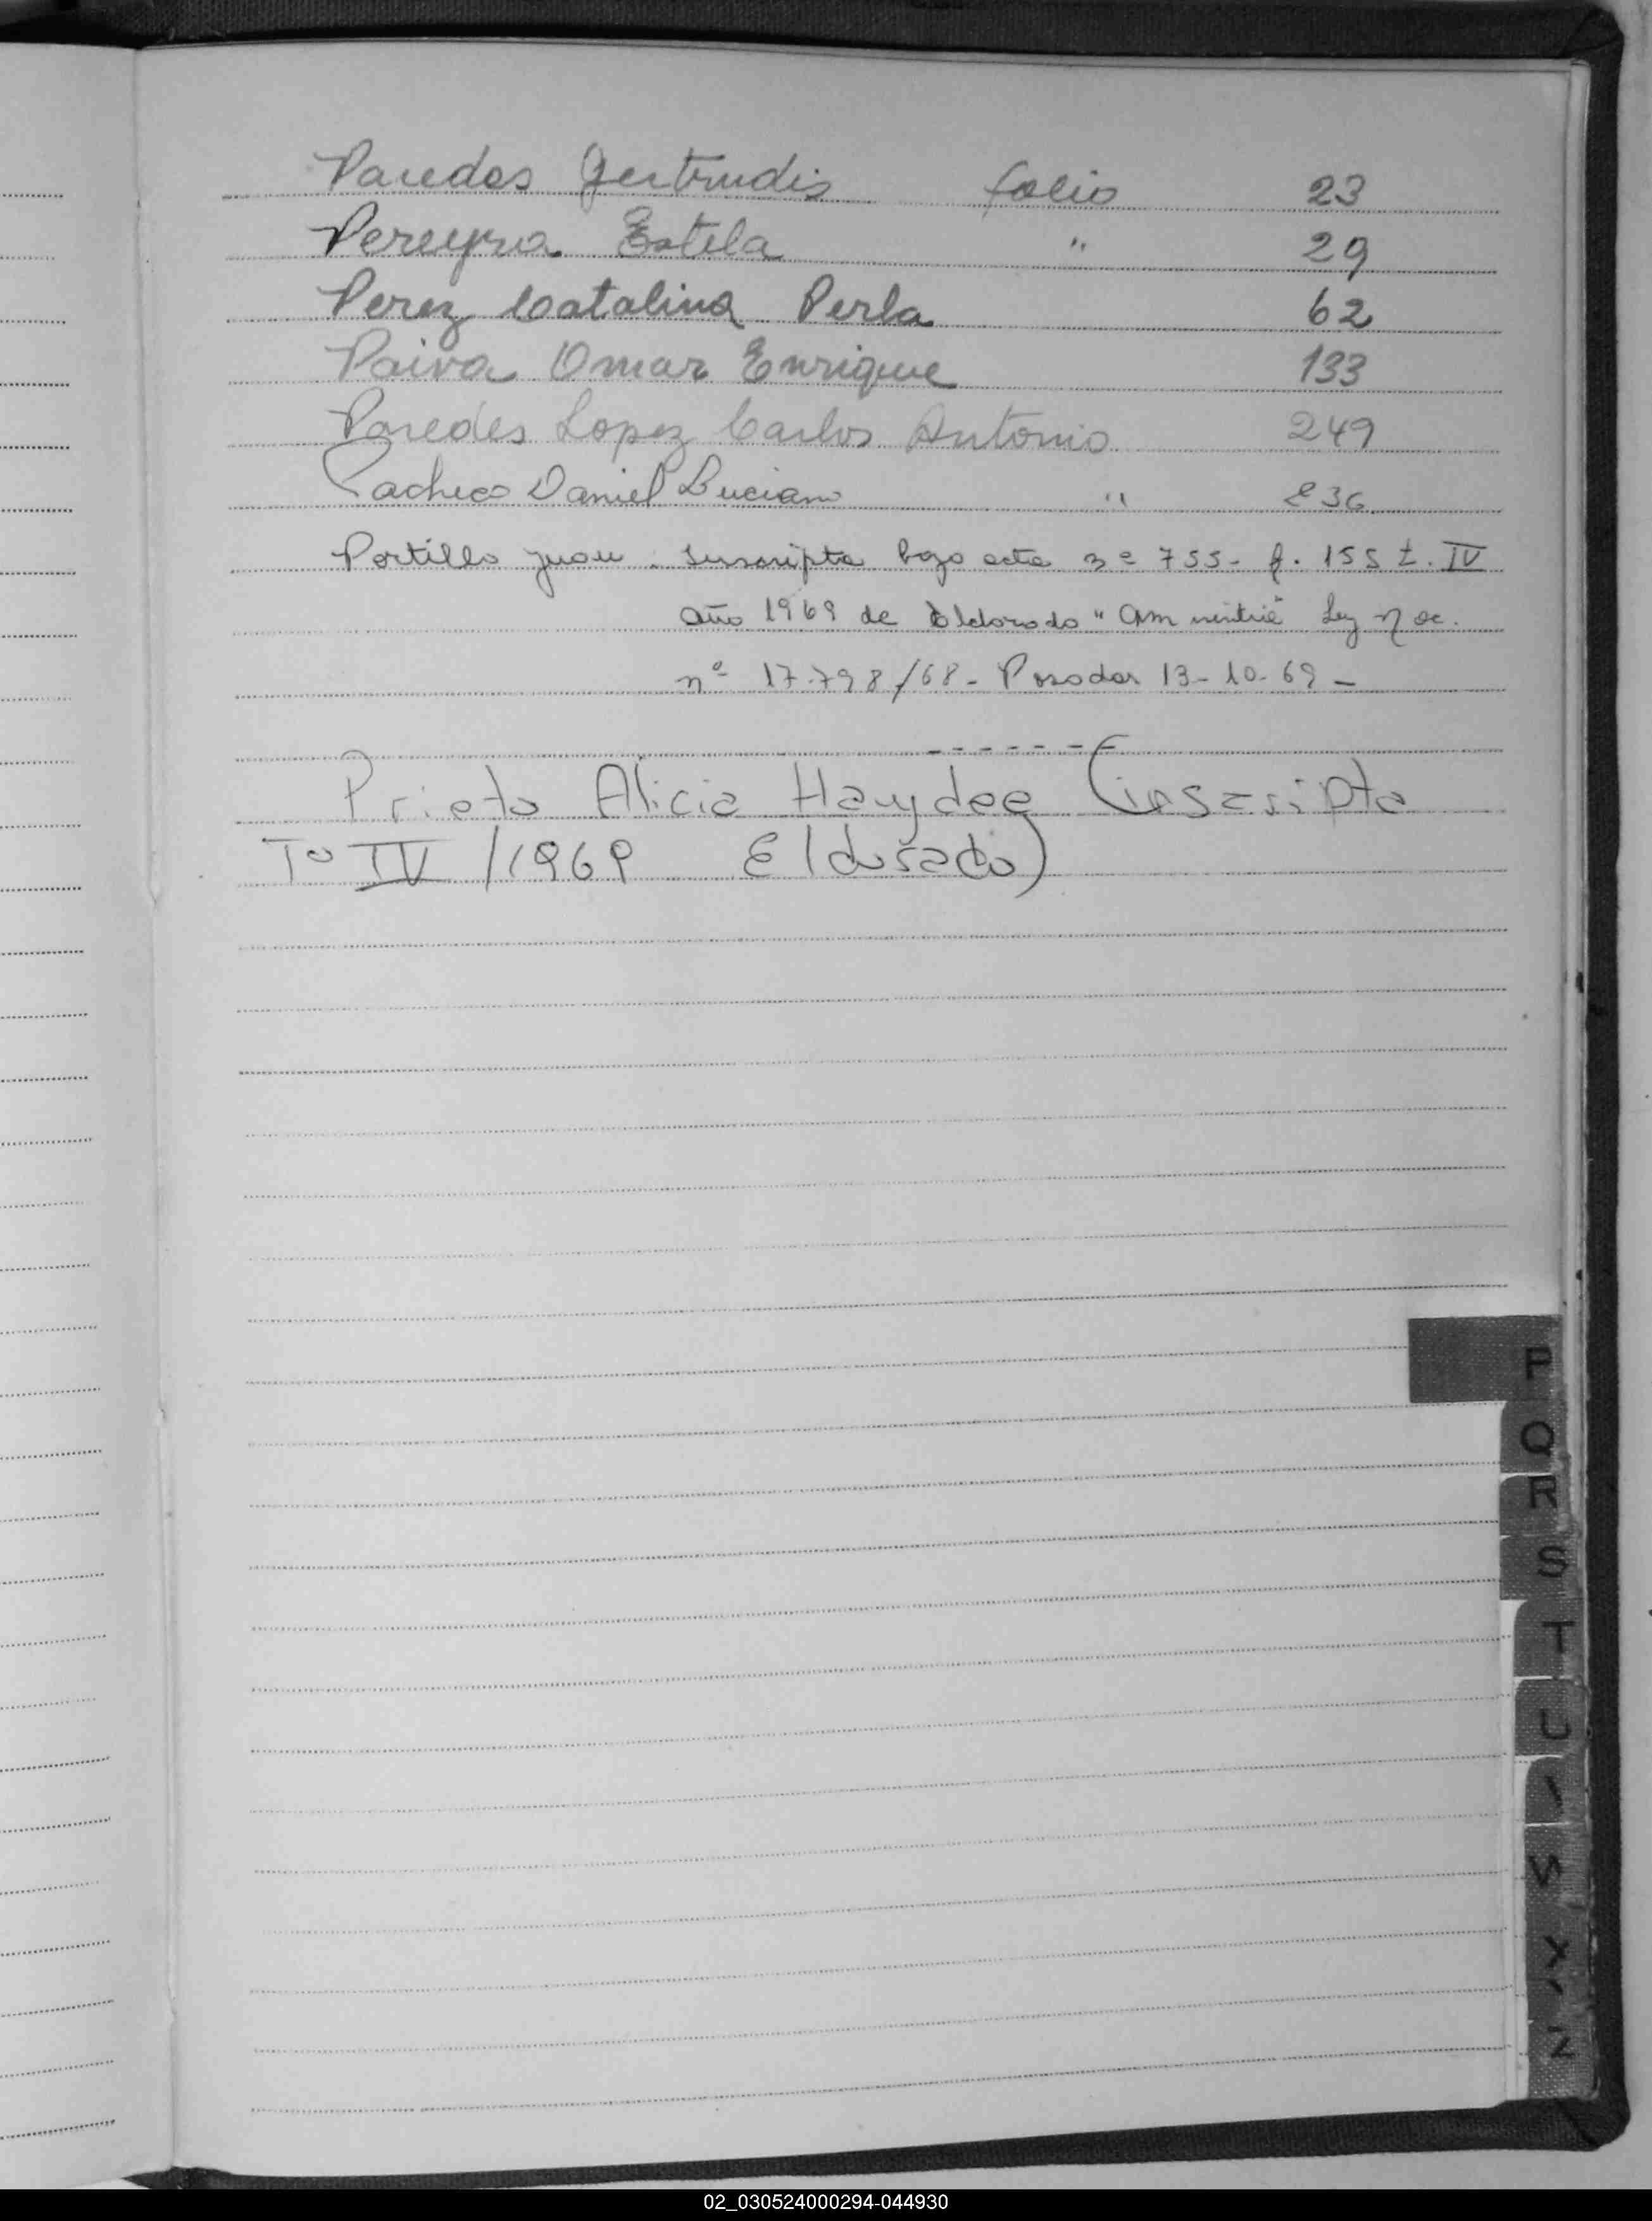 Paredes Gertrudis folio 23
Pereyra Estela " 29
Perez Catalina Perla 62
Paiva Omar Enrique 133
Paredes Lopez Carlos Antonio 249
Pacheco Daniel Luciano " 236
Portillo Juan. Inscripto bajo acta nº 755- f. 155 t. IV
Año 1969 de Eldorado " Amnistia" Ley
nº 17.798/68- Posadas 13-10-69-
- - - - - - -
Prieto Alicia Haydee (inscripta
Tº IV /1969 Eldorado)
P
Q
R
S
T
U
W
X
Z
02_030524000294-044930